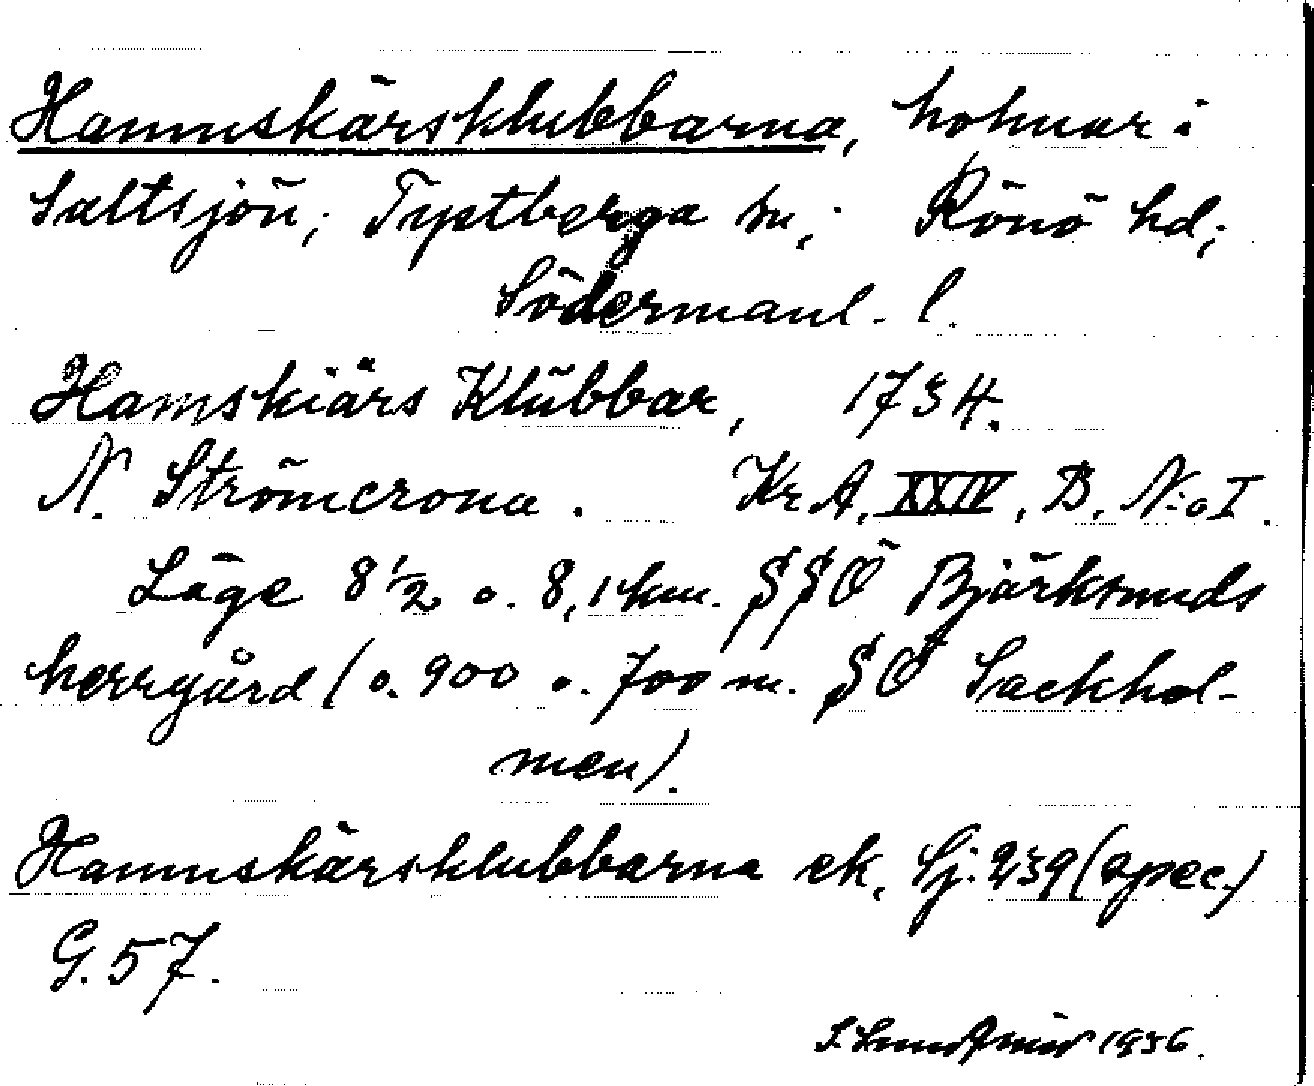 Hamnskärsklubbarna, holmar i
Saltsjön; Tystberga sn; Rönö hd;
Södermanl. l.
Hamskiärs Klŭbbar, 1734.
N. Strömcrona. Kr.A. XXIV, B. N:o I.
Läge 8 1/2 o. 8,1 km. SSÖ Björksunds
herrgård (o. 900 o. 700 m. SÖ Sackhol-
men).
Hamnskärsklubbarna ek. Sj. 239 (spec.)
G. 57.
1936.